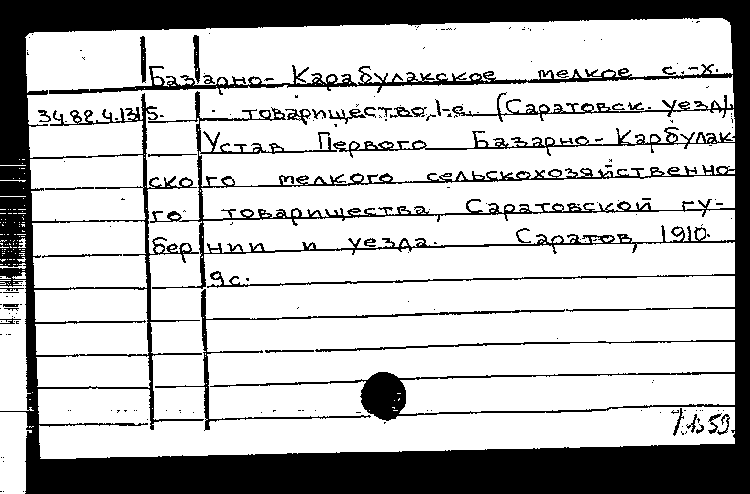 Базарно-Карабулакское мелкое с.-х.
34.82.4.131/5. товарищество, 1-е. (Саратовск. уезд).
Устав Первого Базарно-Карбулак-
ского мелкого сельскохозяйственно-
го товарищества, Саратовской гу-
бернии и уезда. Саратов, 1910.
9с.